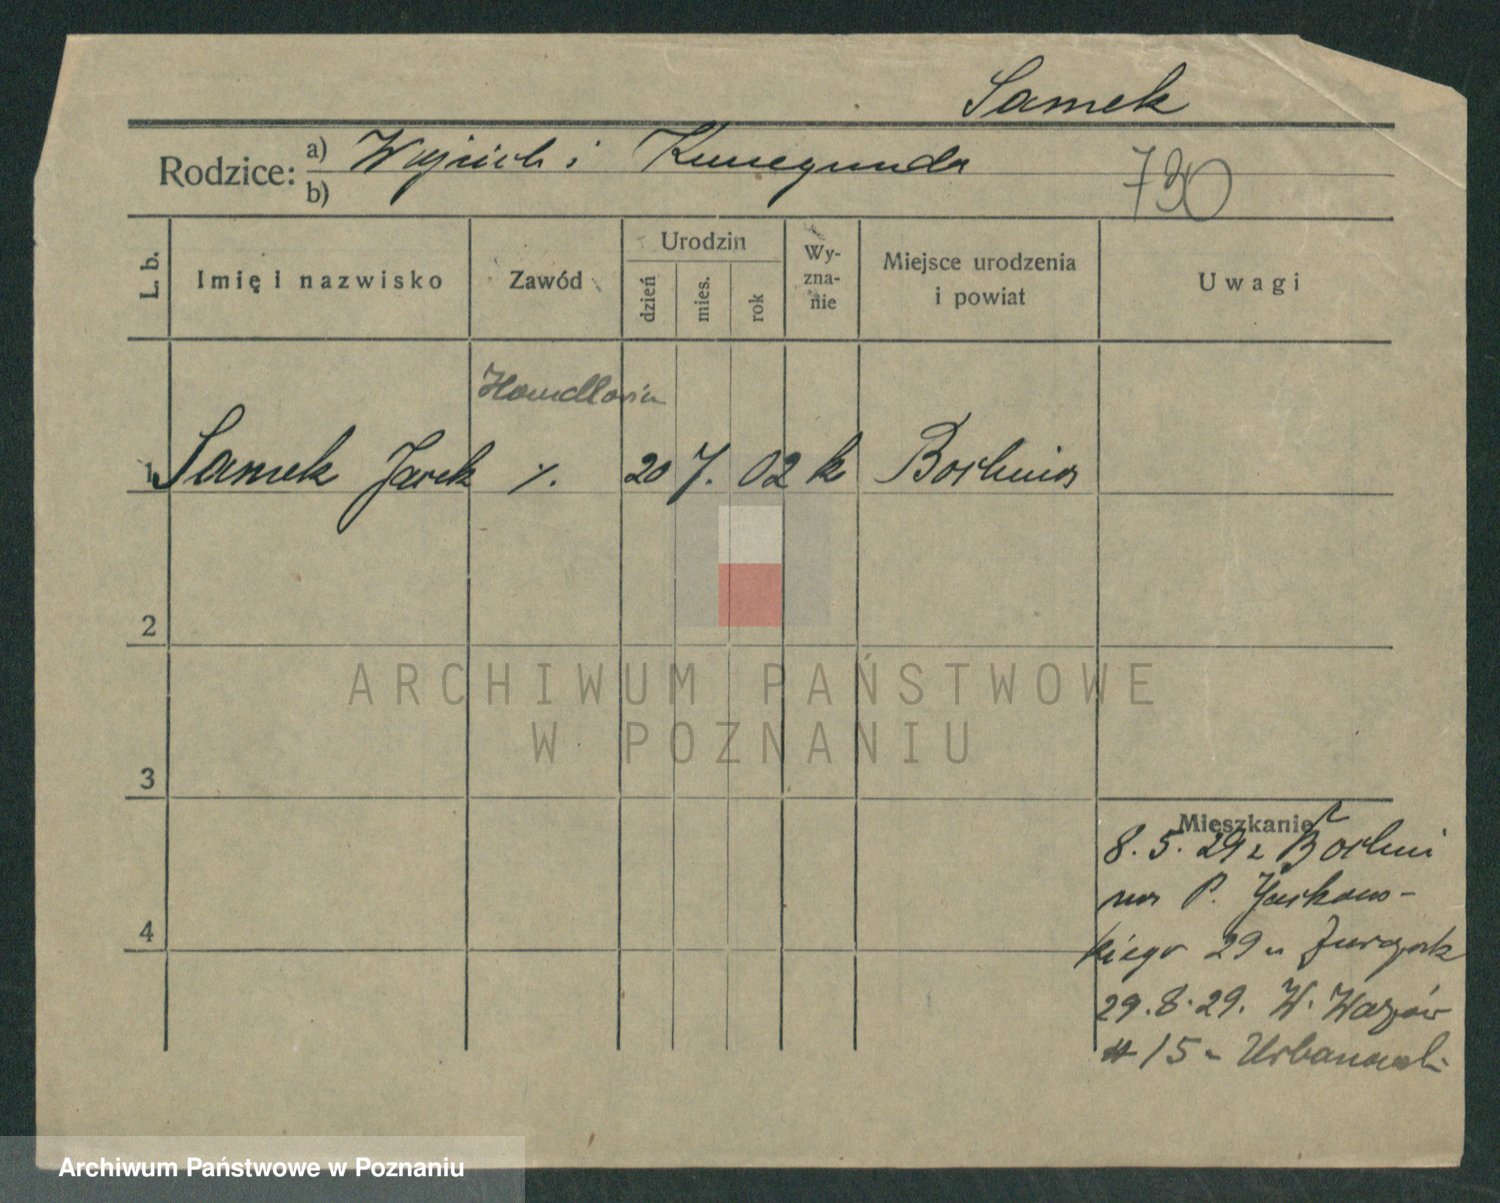 Samek
Rodzice: a) Wojciech i Kunegunda
b)
730
L. b.
Imię i nazwisko
Zawód
Urodzin
dzień
mies.
rok
Wy-
zna-
nie
Miejsce urodzenia
i powiat
Uwagi
Handlowiec
1 Samek Jacek 20 7. 02 k
2
3
4
Mieszkanie
8. 5. 29 z
P.
kiego 29 u
29. 8. 29. W.
15 u Urbanowski
ARCHIWUM PAŃSTWOWE
W POZNANIU
Archiwum Państwowe w Poznaniu